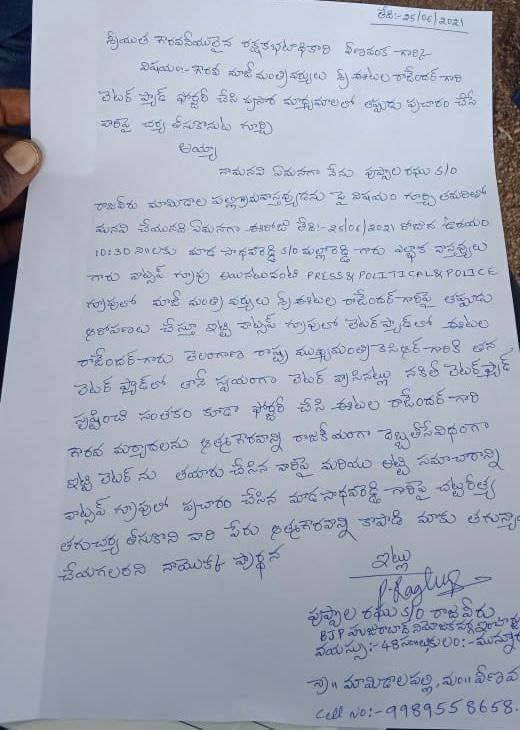 తేది:-25/06/2021
శ్రీయుత గౌరవనీయులైన రక్షకభటాధికారి వీణవంక గారికి
విషయం:- గౌరవ మాజీ మంత్రివర్యులు శ్రీ ఈటల రాజేందర్ గారి
లెటర్ ప్యాడ్ ఫోర్జరీ చేసి ప్రసార మాధ్యమాలలో తప్పుడు ప్రచారం చేసే
వారిపై చర్య తీసుకొనుట గూర్చి
అయ్యా
నామనవి ఏమనగా నేను పుప్పాల రఘు S/O
రాజవీరు మామిడాల పల్లి గ్రామవాస్తవ్యుడను పై విషయం గూర్చి తమరితో
మనవి చేయునది ఏమనగా ఈరోజు తేది:-25/06/2021 రోజున ఉదయం
10:30 ని॥లకు మాడ సాధవరెడ్డి S/O మల్లారెడ్డి గారు వాస్తవ్యులు
గారు వాట్సప్ గ్రూపు అయినటువంటి PRESS & POLITICAL & POLICE
గ్రూపులో మాజీ మంత్రి వర్యులు శ్రీ ఈటల రాజేందర్ గారిపై తప్పుడు
ఆరోపణలు చేస్తూ ఇట్టి వాట్సప్ గ్రూపులో లెటర్ ప్యాడ్ లో ఈటల
రాజేందర్ గారు తెలంగాణ రాష్ట్ర ముఖ్యమంత్రి కెసిఆర్ గారికి తన
లెటర్ ప్యాడ్ లో తానే స్వయంగా లెటర్ వ్రాసినట్లు నకిలీ లెటర్ ప్యాడ్
సృష్టించి సంతకం కూడా ఫోర్జరీ చేసి ఈటల రాజేందర్ గారి
గౌరవ మర్యాదలను ఆత్మగౌరవాన్ని రాజకీయంగా దెబ్బతీసేవిధంగా
ఇట్టి లెటర్ ను తయారు చేసిన వారిపై మరియు అట్టి సమాచారాన్ని
వాట్సప్ గ్రూపులో ప్రచారం చేసిన మాడ సాధవరెడ్డి గారిపై చట్టరీత్య
తగుచర్య తీసుకొని వారి పేరు ఆత్మగౌరవాన్ని కాపాడి మాకు
చేయగలరని నాయొక్క ప్రార్థన
ఇట్లు
P. Raghu
పుప్పాల రఘు S/O రాజవీరు
BJP హుజురాబాద్ నియోజకవర్గ
వయస్సు:-48 సం॥లు కులం:-
గ్రా॥ మామిడాలపల్లి, మం॥ వీణవ
Cell No:- 9989558658.